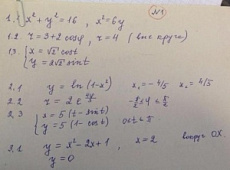 №1
1.1 x² + y² = 16, x² = 6y
1.2. r = 3 + 2cosφ, r = 4 (вне круга)
1.3. { x = √2 cost
y = 2√2 sint
2.1 y = ln(1-x²) x₁ = -4/5 x₂ = 4/5
2.2 r = 2e
2.3 { x = 5(t - sint)
y = 5(1 - cost) 0≤t≤π
3.1 y = x² - 2x + 1, x = 2 вокруг OX.
y = 0